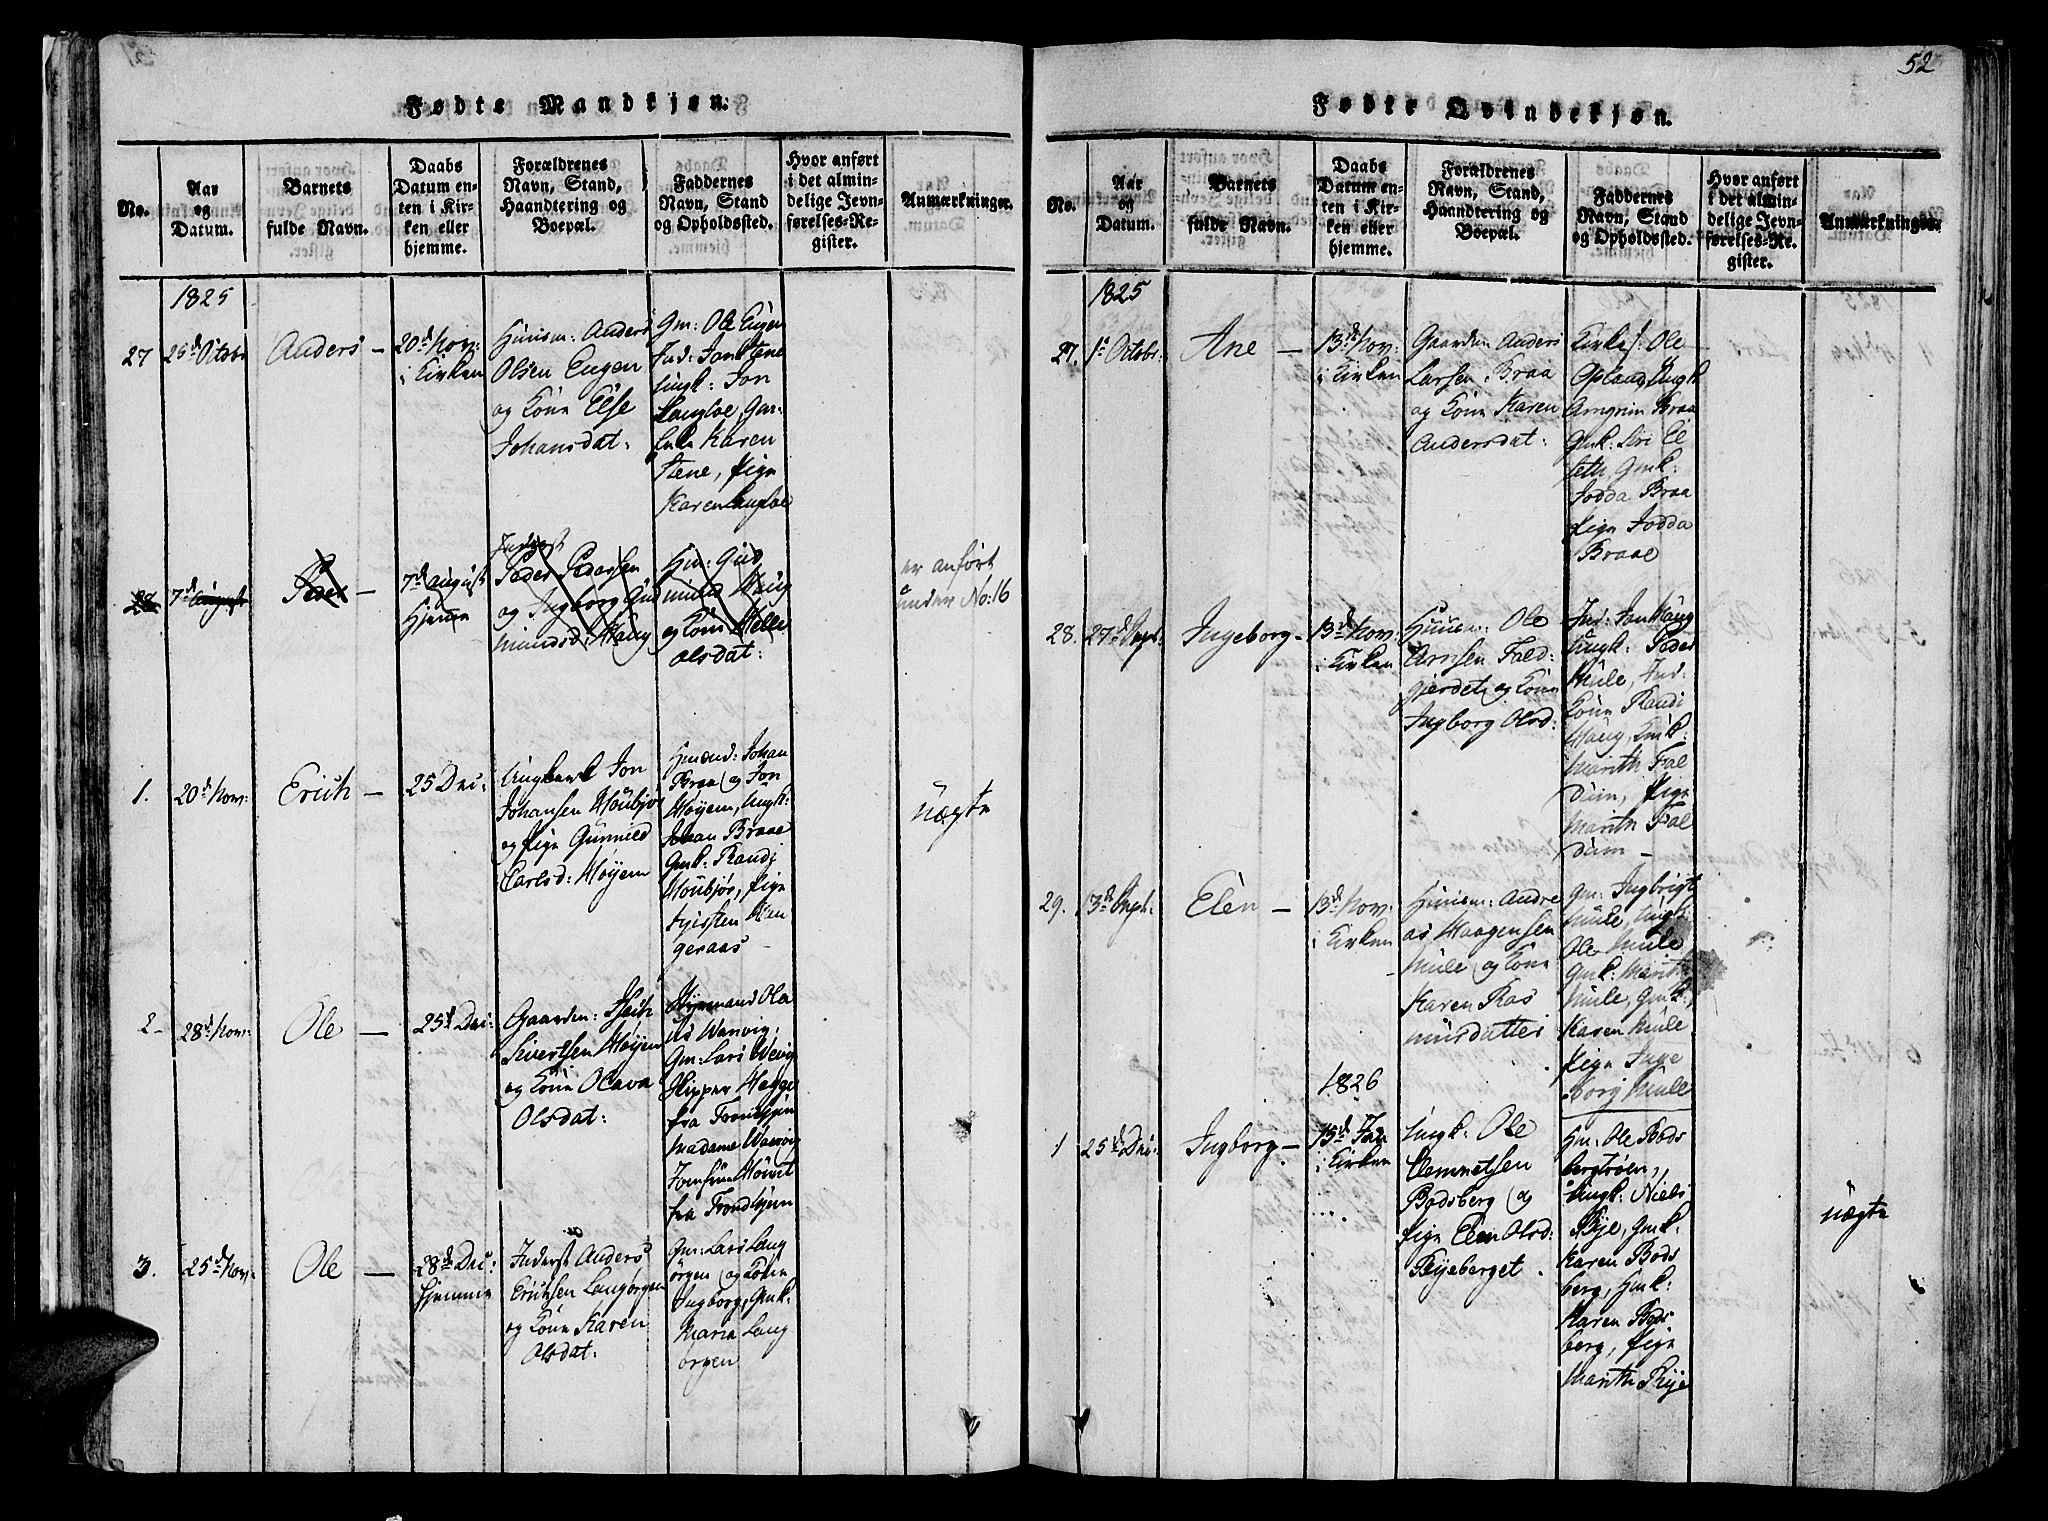 52
Fødte Mandkjøn.
No.
Aar
og
Datum.
Barnets
fulde Navn.
Daabs
Datum en-
ten i Kir-
ken eller
hjemme.
Forældrenes
Navn, Stand,
Haandtering og
Boepæl.
Faddernes
Navn, Stand
og Opholdssted.
Hvor anført
i det almin-
delige Jevn-
førelses-Re-
gister.
Anmærkninger.
1825
27
25d Octobr
Anders —
20d Nov:
i Kirken
Huusm: Anders
Olsen Eugen
og Kone Else
Johansdat:
Gm: Ole Eugen
Ind: Jon Stene
Ungk: Jon
Langloe, Gm-
Karen
Stene, Pige
Karen Langloe
28
7d August
Peder —
7d August
Hjemme
Inderst
Peder Pedersen
og Ingborg Gud
mundsd: Haug
Hm: Gud
mund Haug
og Kone
Olsdat:
er anført
under No: 16
1.
20d Nov:
Erich —
25 Dec:
Ungkarl Jon
Johansen Houbjør
og Pige Gunnild
Carlsd: Høyem
Hmænd: Johan
Braa og Jon
Høyem, Ungk:
Johan Braae
Gmk: Randi
Houbjør, Pige
Hen
geraas
uægte
2-
28d Nov:
Ole —
25d Dec:
Gaardm:
Sivertsen Høyem
og Kone Olava
Olsdat:
Ola
us Wanvig,
Gm: Lars Wevig
Skipper Hegge
fra Trondhjem
Madame Wanvig
Jomfrue
fra Trondhjem
3.
25d Nov:
Ole —
28d Dec:
Hjemme
Inderst Anders
Erichsen Langørgen
og Kone Karen
Olsdat:
Gm: Lars Lang
ørgen og Kone
Ingborg, Gmk:
Maria Lang
ørgen
Fødte Qvindekjøn.
No.
Aar
og
Datum.
Barnets
fulde Navn.
Daabs
Datum en-
ten i Kir-
ken eller
hjemme.
Forældrenes
Navn, Stand,
Haandtering og
Boepæl.
Faddernes
Navn, Stand
og Opholdssted.
Hvor anført
i det almin-
delige Jevn-
førelses-Re-
gister.
Anmærkninger.
1825
27.
1d Octobr:
Ane —
13d Nov:
i Kirken
Gaardm: Anders
Larsen Braa
og Kone Karen
Andersdat:
Kirkes: Ole
Opland, Ungk
Arngrim Braa
Gmk: Siri El
seth, Gmk:
Jodda Braa
Pige Jodda
Braae
28.
27d Sept:
Ingeborg —
13d Nov:
i Kirken
Huusm: Ole
Arnsen Fald-
gjerdet, og Kone
Ingborg Olsd:
Ind: Jon Haug
Ungk: Peder
Mule, Ind:
Kone Randi
Haug, Gmk:
Marith Fal
dum, Pige
Marith Fal
dum —
29.
13d Sept:
Elen —
13d Nov:
i Kirken
Huusm: Andre
as Haagensen
Mule og Kone
Karen Ras
musdatter
Gm: Ingbrigt
Mule, Ungk
Ole Mule
Gmk: Marith
Mule, Gmk:
Karen Mule
Pige Inge
borg Mule
1826
1
25d Dec:
Ingborg —
15d Jan
i Kirken
Ungk: Ole
Clemmetsen
Bodsberg og
Pige Elen Olsd:
Ryeberget.
Hm: Ole Bods
bergtrøen,
Ungk: Niels
Rye, Gmk:
Karen Bods
berg, Hmk:
Karen Bods
berg, Pige
Marith Rye
uægte